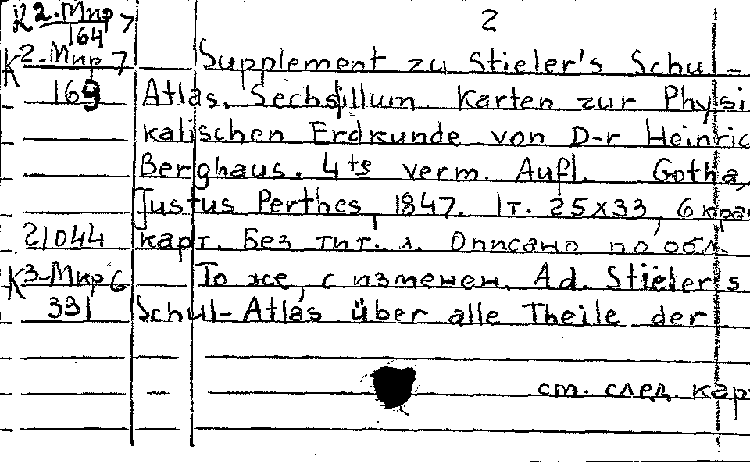 К2-Мир 7
164
2
К2-Мир 7 Supplement zu Stieler's Schul-
169 Atlas. Sechs illum. Karten zur Physi
kalischen Erdkunde von D-r Heinric
Berghaus. 4te verm. Aufl. Gotha,
Justus Perthes, 1847. 1т. 25х33, 6 крат
21044 карт. Без тит. л. Описано по обл
К3-Мир 6 То же, с изменен. Ad. Stieler's
331 Schul-Atlas über alle Theile der
см. след. кар